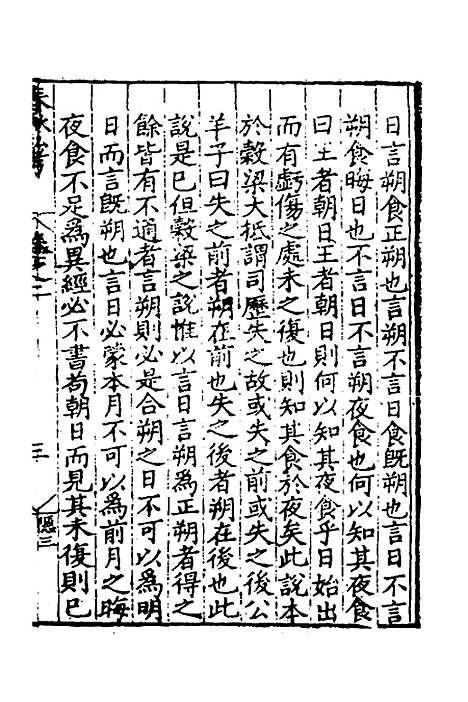 日言朔食正朔也言朔不言日食既朔也言日不言
朔食晦日也不言日不言朔夜食也何以知其夜食
曰王者朝日王者朝日則何以知其夜食乎日始出
而有虧傷之處未之復也則知其食於夜矣此說本
於穀梁大抵謂司歷失之故或失之前或失之後公
羊子曰失之前者朔在前也失之後者朔在後也此
說是已但穀梁之說惟以言日言朔爲正朔者得之
餘皆有不通者言朔則必是合朔之日不可以爲明
日而言既朔也言日必蒙本月不可以爲前月之晦
夜食不足爲異經必不書茍朝日而見其未復則已
三
隱三